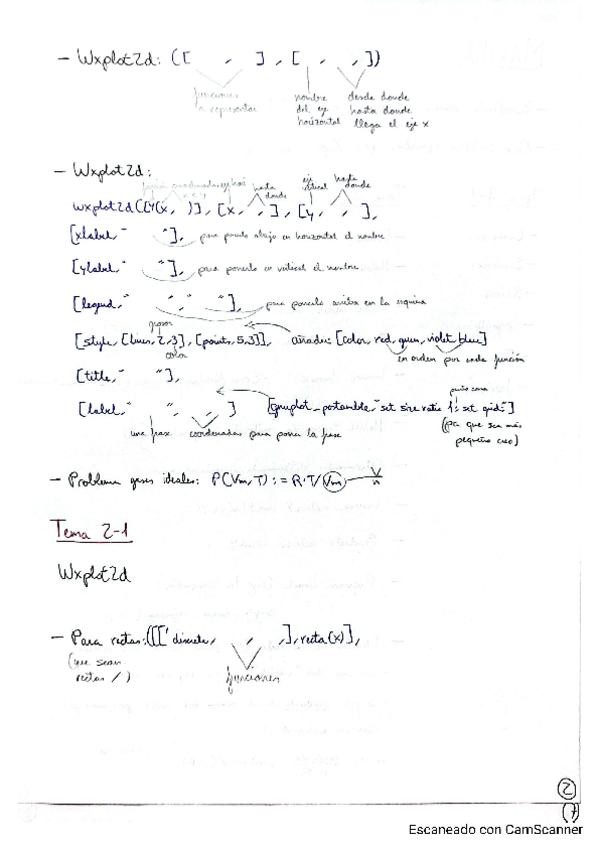 - Wxplot2d: ([ , ] , [ , , ])
funciones nombre desde donde
a representar del eje hasta donde
horizontal llega el eje x
- Wxplot2d:
hasta eje hasta
donde vertical donde
wxplot2d([Y(x, )], [x, , ], [y, , ],
[xlabel," "], para ponerlo abajo en horizontal el nombre
[ylabel," "], para ponerlo en vertical el nombre
[legend," "," "], para ponerlo arriba en la esquina
grosor
[style, [lines,2,3], [points,5,3]], añades: [color, red, green, violet, blue]
color en orden por cada función
[title," "],
punto coma
[label," ", , ] [gnuplot_postamble,"set size ratio 1; set grid;"]
una frase coordenadas para poner la frase (pa que sea más
pequeño caso)
- Problema gases ideales: P(Vm,T) := R·T/Vm V/n
Tema 2-1
Wxplot2d
- Para rectas: ([['discrete, , ,], recta(x)],
(que sean
rectas /) funciones
2
(7)
Escaneado con CamScanner